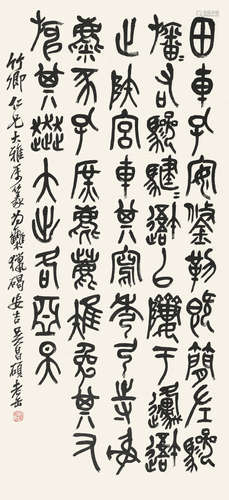 田車孔安鋚勒既簡左驂
旛右驂騝避㠯隮于邍避
止陝宮車其寫秀弓寺射
麋豕孔庶麀鹿雉兔其又
旃其大出各亞昊
竹卿仁兄大雅屬篆為獵碣安吉吳昌碩老缶